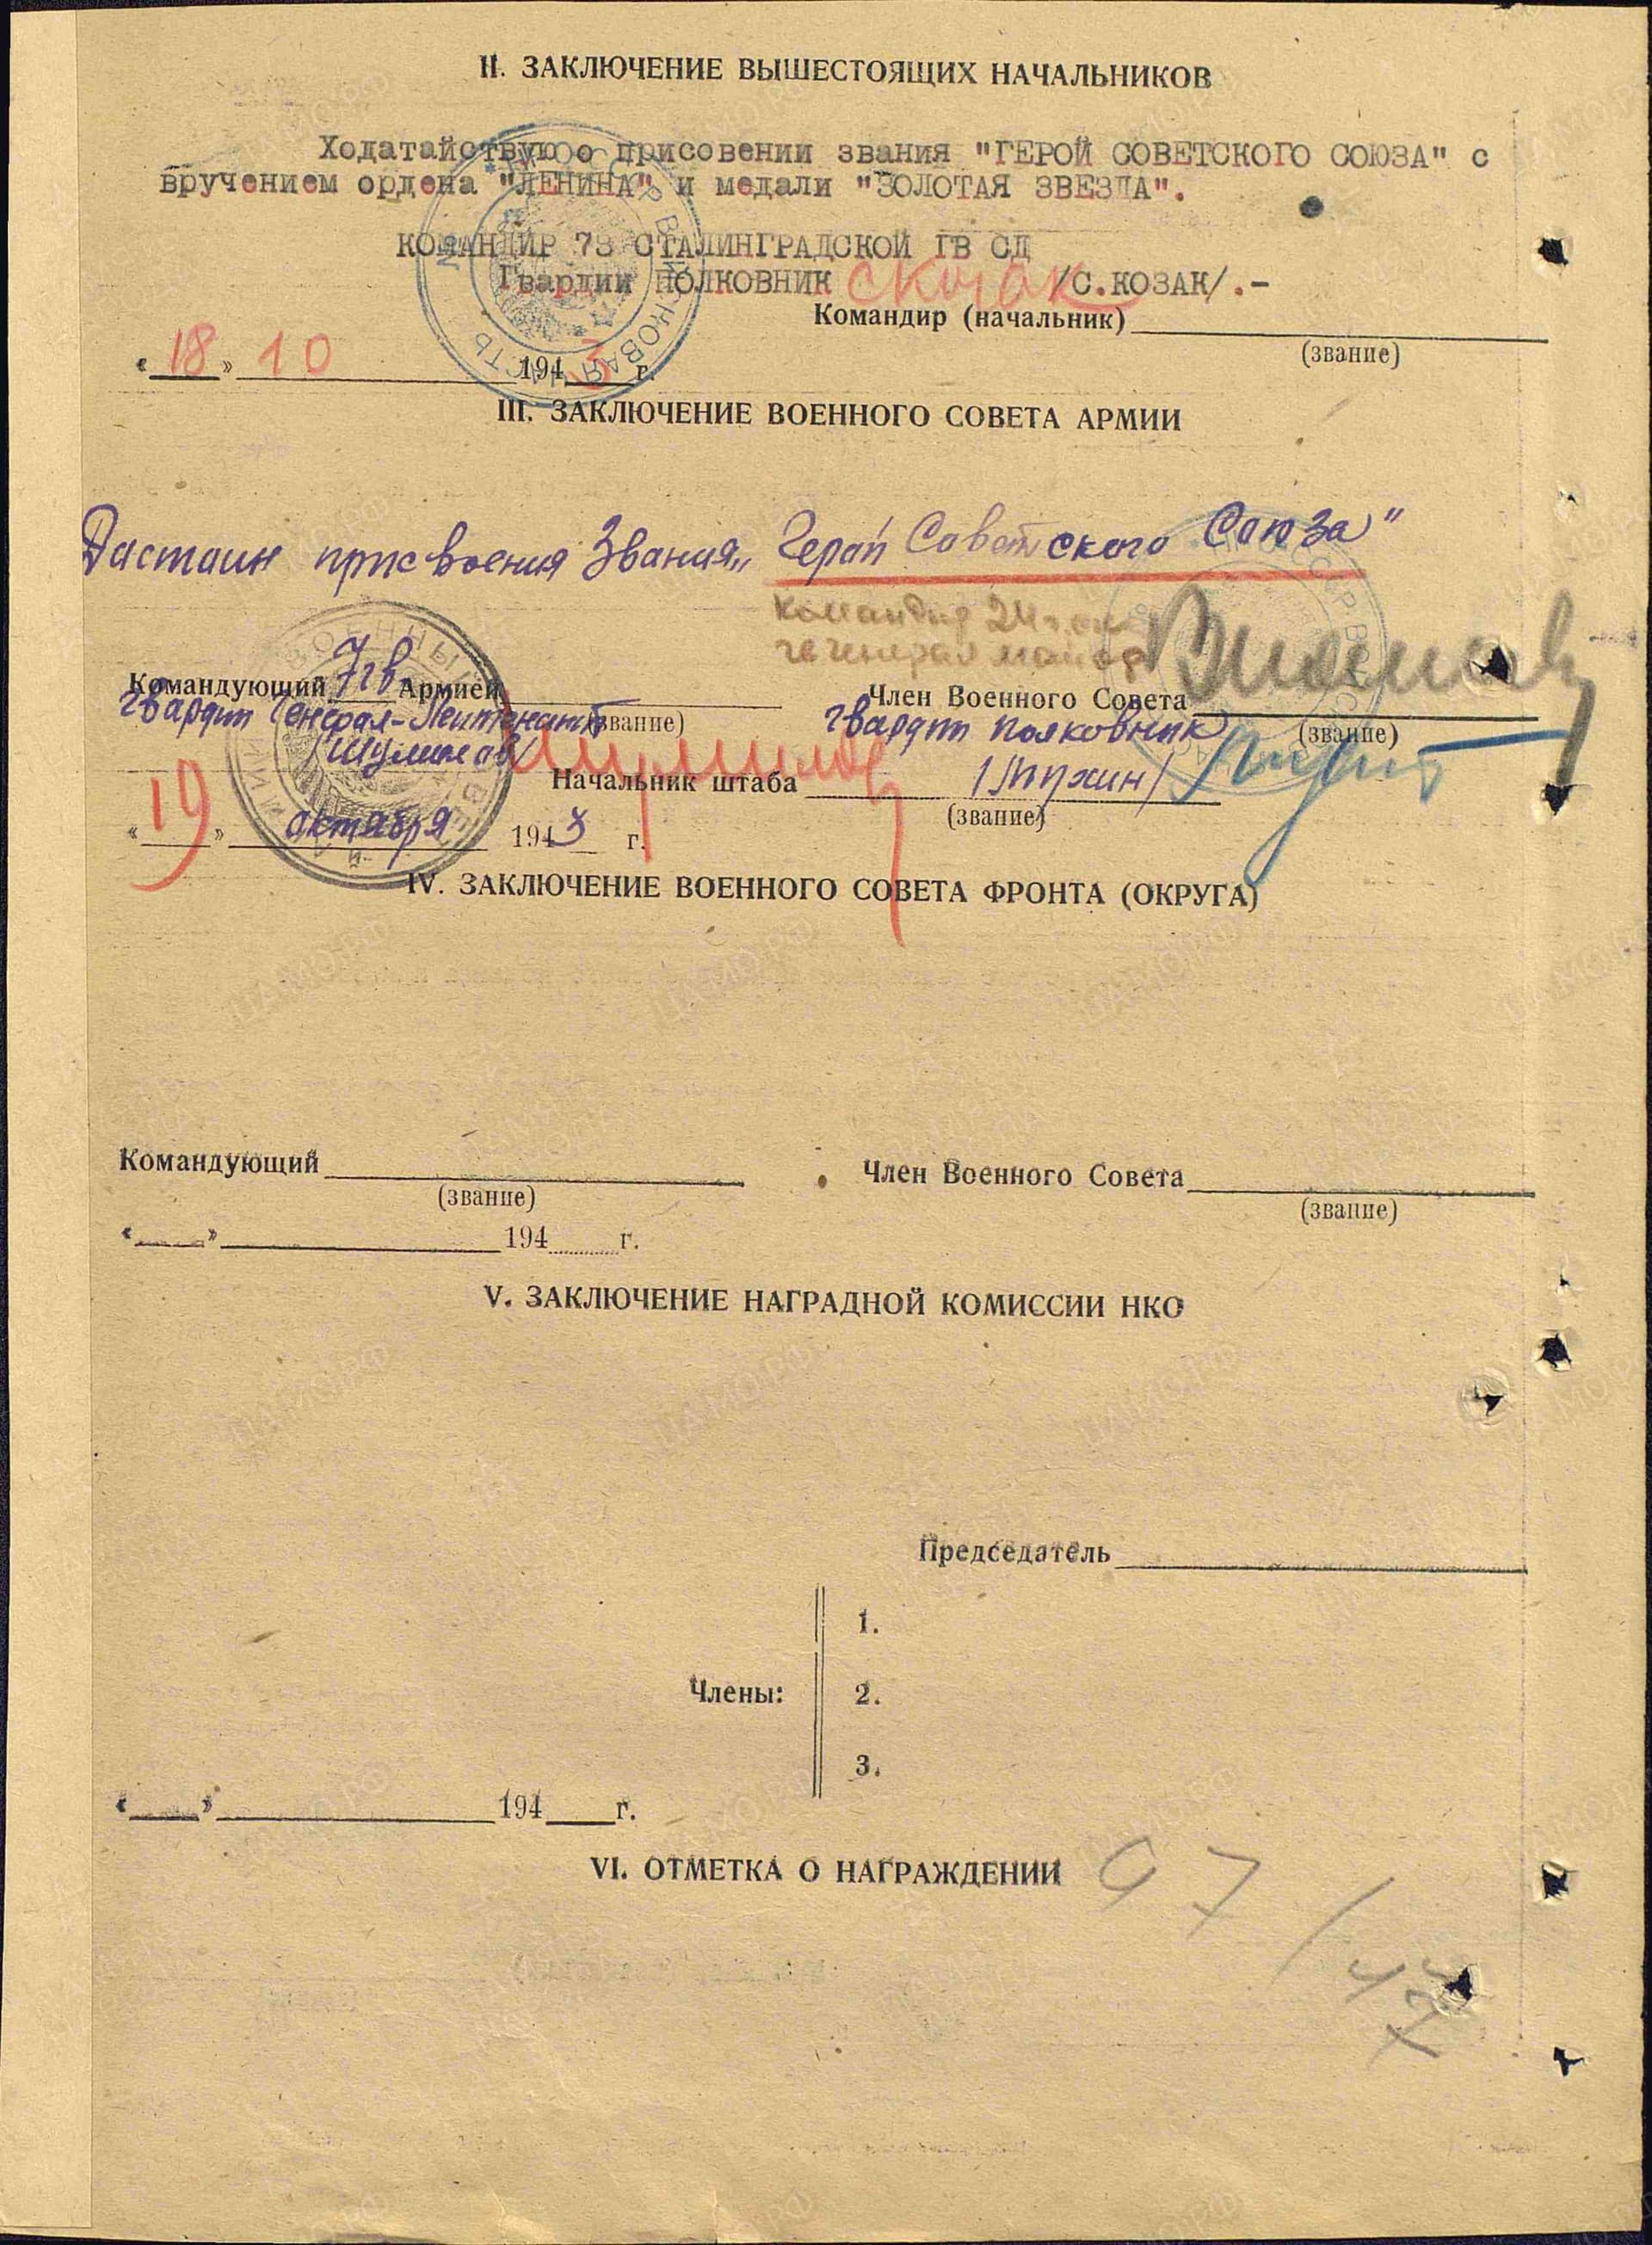 II. ЗАКЛЮЧЕНИЕ ВЫШЕСТОЯЩИХ НАЧАЛЬНИКОВ
Ходатайствую о присовении звания "ГЕРОЙ СОВЕТСКОГО СОЮЗА" с
вручением ордена "ЛЕНИНА" и медали "ЗОЛОТАЯ ЗВЕЗДА".
КОМАНДИР 73 СТАЛИНГРАДСКОЙ ГВ СД
Гвардии ПОЛКОВНИК СКозак /С.КОЗАК/.-
Командир (начальник)
(звание)
«18» 10 1943 г.
III. ЗАКЛЮЧЕНИЕ ВОЕННОГО СОВЕТА АРМИИ
Дастаин присвоения Звания „Герай Саветского Саюза"
Командир 24
генерал майор
Командующий 7 гв Армией
Член Военного Совета
гвардии Генерал-Лейтенант (звание)
гвардии полковник (звание)
/Шумилов/
Начальник штаба
(звание)
«19» октября 1943 г.
IV. ЗАКЛЮЧЕНИЕ ВОЕННОГО СОВЕТА ФРОНТА (ОКРУГА)
Командующий
Член Военного Совета
(звание)
(звание)
« » 194 г.
V. ЗАКЛЮЧЕНИЕ НАГРАДНОЙ КОМИССИИ НКО
Председатель
1.
Члены: 2.
3.
« » 194 г.
VI. ОТМЕТКА О НАГРАЖДЕНИИ
97